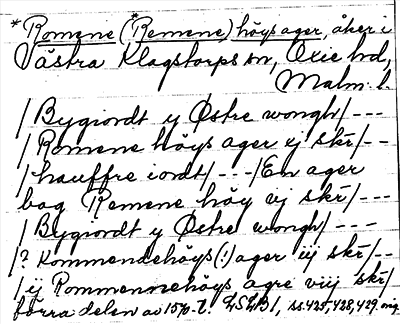 *Romene (*Remene) höys ager, åker i
Västra Klagstorps sn, Oxie hd,
Malm. l.
/ Bygiordt y Østre wongh/ ---
/ Romene höys ager ij skr/ --
/ hauffre iordt/ --- / En ager
bag Remene höy vj skr/ ---
/ Bygiordt y Østre wongh/ ---
/? Kommendehöys (!) ager iij skr/ --
/ ij Rommennehöys agre viij skr/
förra delen av 15/6-t. LSLB1, ss. 425, 428, 429. orig.